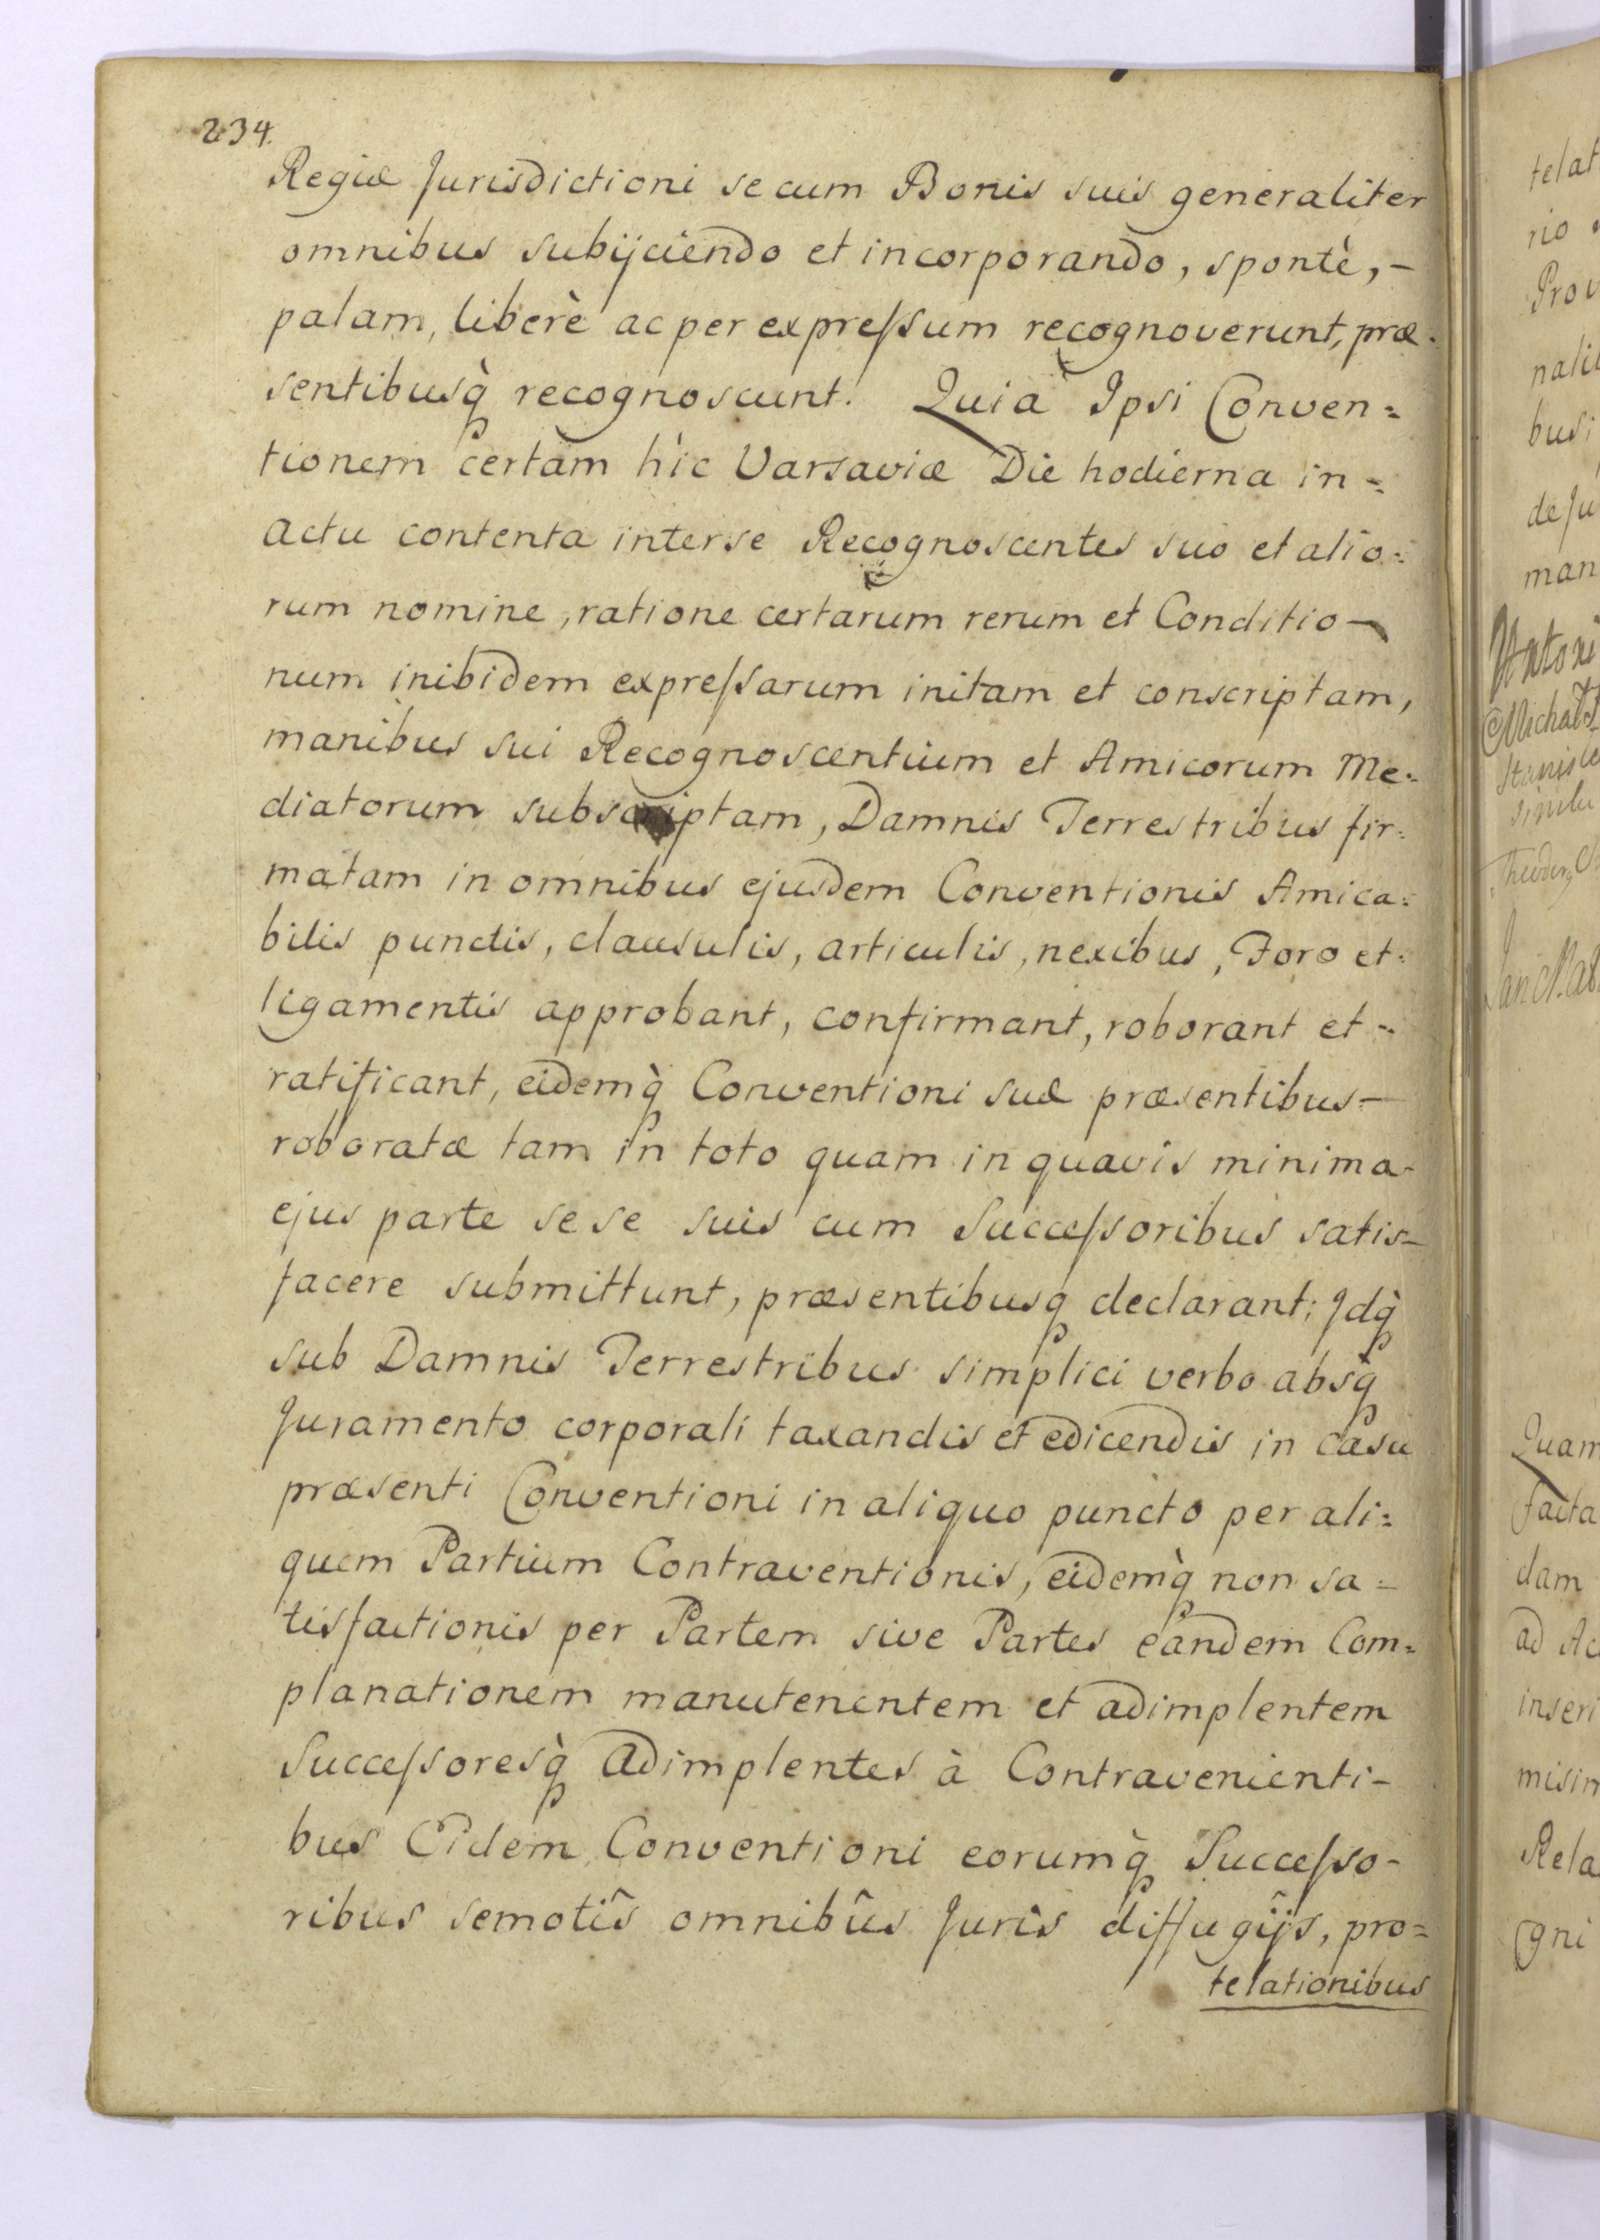 234.
Regiæ Jurisdictioni se cum Bonis suis generaliter
omnibus subijciendo et incorporando, spontè, -
palam, liberè ac per expreſsum recognoverunt, præ-
sentibusq̀ recognoscunt. Quia Ipsi Conven=
tionem certam hìc Varsaviæ Die hodierna in =
Actu contenta inter se Recognoscentes suo et alio=
rum nomine, ratione certarum rerum et Conditio-
num inibidem expreſsarum initam et conscriptam,
manibus sui Recognoscentium et Amicorum Me=
diatorum subscriptam, Damnis Terrestribus fir=
matam in omnibus ejusdem Conventionis Amica=
bilis punctis, clausulis, articulis, nexibus, Foro et=
ligamentis approbant, confirmant, roborant et -
ratificant, eidemq̀ Conventioni suæ præsentibus -
roboratæ tam in toto quam in quavis minima -
ejus parte se se suis cum Succeſsoribus satis-
facere submittunt, præsentibusq declarant; Jdq̀
sub Damnis Terrestribus simplici verbo absq̀
Juramento corporali taxandis et edicendis in casu
præsenti Conventioni in aliquo puncto per ali=
quem Partium Contraventionis, eidemq̀ non sa =
tisfactionis per Partem sive Partes eandem Com=
planationem manutenentem et adimplentem
Succeſsoresq̀ Adimplentes à Contravenienti-
bus Eidem Conventioni eorumq̀ Succeſso-
ribus semotîs omnibûs Juris diffugîjs, pro=
telationibus
telat
rio
Prov
nali
busi
de Ju
man
Antoni
Michał
Jan
Quam
facta
dam
ad Ac
inseri
misim
Rela
gni